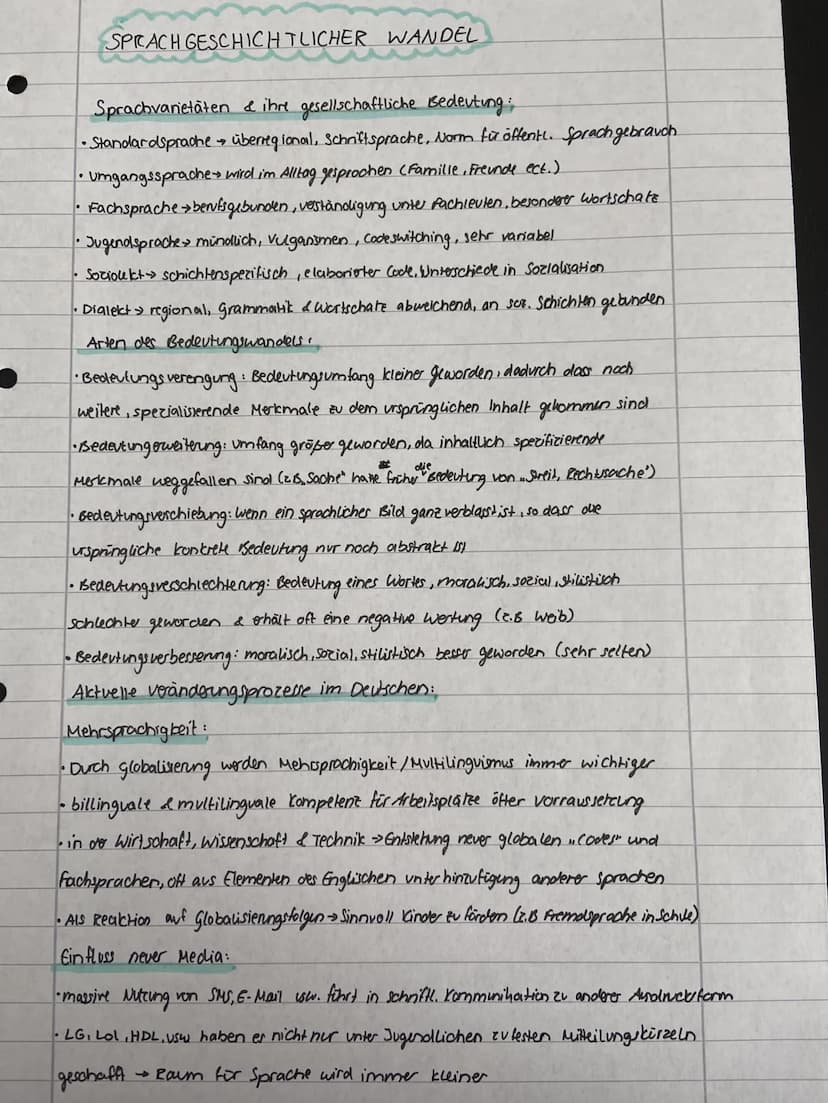 SPRACHGESCHICHTLICHER WANDEL
Sprachvarietäten & ihre gesellschaftliche Bedeutung:
• Standardsprache → überregional, Schriftsprache, Norm für öffentl. Sprachgebrauch
• Umgangssprache → wird im Alltag gesprochen (Familie, Freunde ect.)
• Fachsprache → berufsgebunden, verständigung unter Fachleuten, besonderer Wortschatz
• Jugendsprache → mündlich, Vulgarismen, Codeswitching, sehr variabel
• Soziolekt → schichtenspezifisch, elaborierter Code, Unterschiede in Sozialisation
• Dialekt → regional, Grammatik & Wortschatz abweichend, an soz. Schichten gebunden
Arten des Bedeutungswandels:
• Bedeutungsverengung: Bedeutungsumfang kleiner geworden, dadurch dass noch
weitere, spezialisierende Merkmale zu dem ursprünglichen Inhalt gekommen sind
• Bedeutungserweiterung: Umfang größer geworden, da inhaltlich spezifizierende
Merkmale weggefallen sind (z.B. „Sache" hatte früher die Bedeutung von „Streit, Rechtssache")
• Bedeutungsverschiebung: Wenn ein sprachlicher Bild ganz verblasst ist, so dass die
ursprüngliche konkrete Bedeutung nur noch abstrakt ist
• Bedeutungsverschlechterung: Bedeutung eines Wortes, moralisch, sozial, stilistisch
schlechter geworden & erhält oft eine negative Wertung (z.B Weib)
• Bedeutungsverbesserung: moralisch, sozial, stilistisch besser geworden (sehr selten)
Aktuelle Veränderungsprozesse im Deutschen:
Mehrsprachigkeit:
• Durch Globalisierung werden Mehrsprachigkeit / Multilinguismus immer wichtiger
• billinguale & multilinguale Kompetenz für Arbeitsplätze öfter Vorraussetzung
• in der Wirtschaft, Wissenschaft & Technik → Entstehung neuer globalen „Codes" und
Fachsprachen, oft aus Elementen des Englischen unter hinzufügung anderer Sprachen
• Als Reaktion auf Globalisierungsfolgen → Sinnvoll Kinder zu fördern (z.B Fremdsprache in Schule)
Einfluss neuer Media:
• massive Nutzung von SMS, E-Mail usw. führt in schriftl. Kommunikation zu anderer Ausdrucksform
• LG, Lol, HDL, usw haben es nicht nur unter Jugendlichen zu festen Mitteilungskürzeln
geschafft → Raum für Sprache wird immer kleiner